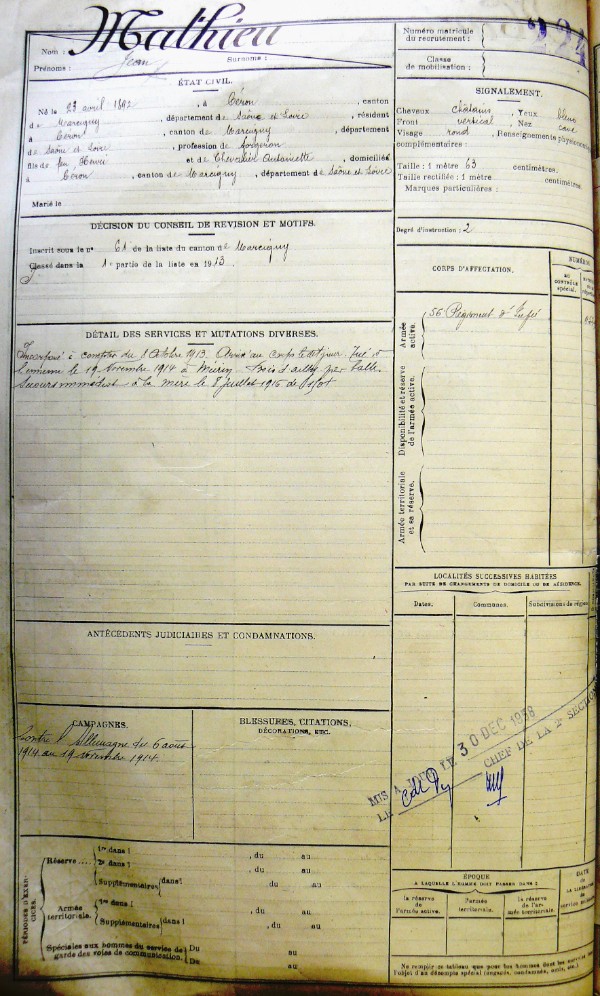 Mathieu
Nom :
Prénoms : Jean
Surnoms :
Numéro matricule
du recrutement :
224
Classe
de mobilisation :
ÉTAT CIVIL.
Né le 23 avril 1892, à Céron, canton
de Marcigny, département de Saône et Loire, résident
à Céron, canton de Marcigny, département
de Saône et Loire, profession de forgeron
fils de feu Henri et de Chevalier Antoinette, domiciliés
à Céron, canton de Marcigny, département de Saône et Loire
Marié le
SIGNALEMENT.
Cheveux châtains, Yeux bleus
Front vertical, Nez cave
Visage rond, Renseignements physionomiques
complémentaires :
Taille : 1 mètre 63 centimètres.
Taille rectifiée : 1 mètre centimètres.
Marques particulières :
Degré d'instruction : 2
DÉCISION DU CONSEIL DE REVISION ET MOTIFS.
Inscrit sous le n° 61 de la liste du canton de Marcigny
Classé dans la 1e partie de la liste en 1913
DÉTAIL DES SERVICES ET MUTATIONS DIVERSES.
Incorporé à compter du 8 Octobre 1913. Arrivé au corps le dit jour. Tué à
l'ennemi le 19 Novembre 1914 à Bois d'Ailly par balle.
Secours immédiat à la mère le 8 juillet 1916 de
CORPS D'AFFECTATION.
NUMÉROS
AU
CONTRÔLE
spécial.
Armée
active.
56e Régiment d'Infie
Disponibilité et réserve
de l'armée active.
Armée territoriale
et sa réserve.
LOCALITÉS SUCCESSIVES HABITÉES
PAR SUITE DE CHANGEMENTS DE DOMICILE OU DE RÉSIDENCE.
Dates.
Communes.
Subdivisions de région
ANTÉCÉDENTS JUDICIAIRES ET CONDAMNATIONS.
CAMPAGNES.
Contre l'Allemagne du 6 août
1914 au 19 novembre 1914
BLESSURES, CITATIONS,
DÉCORATIONS, ETC.
MIS A JOUR LE 30 DEC 1938
LE CHEF DE LA 2e SECTION
PÉRIODES D'EXERCICES.
Réserve ....
1re dans l , du au
2e dans l , du au
Supplémentaires dans l du au
Armée
territoriale.
1re dans l , du au
Supplémentaires dans l , du au
Spéciales aux hommes du service de
garde des voies de communication.
Du au
Du au
ÉPOQUE
A LAQUELLE L'HOMME DOIT PASSER DANS :
la réserve
de
l'armée active.
l'armée
territoriale.
la réserve
de l'armée
territoriale.
DATE
de
LA LIBÉRATION
Ne remplir ce tableau que pour les hommes dont les services
l'objet d'un décompte spécial (engagés, condamnés, omis, etc.)